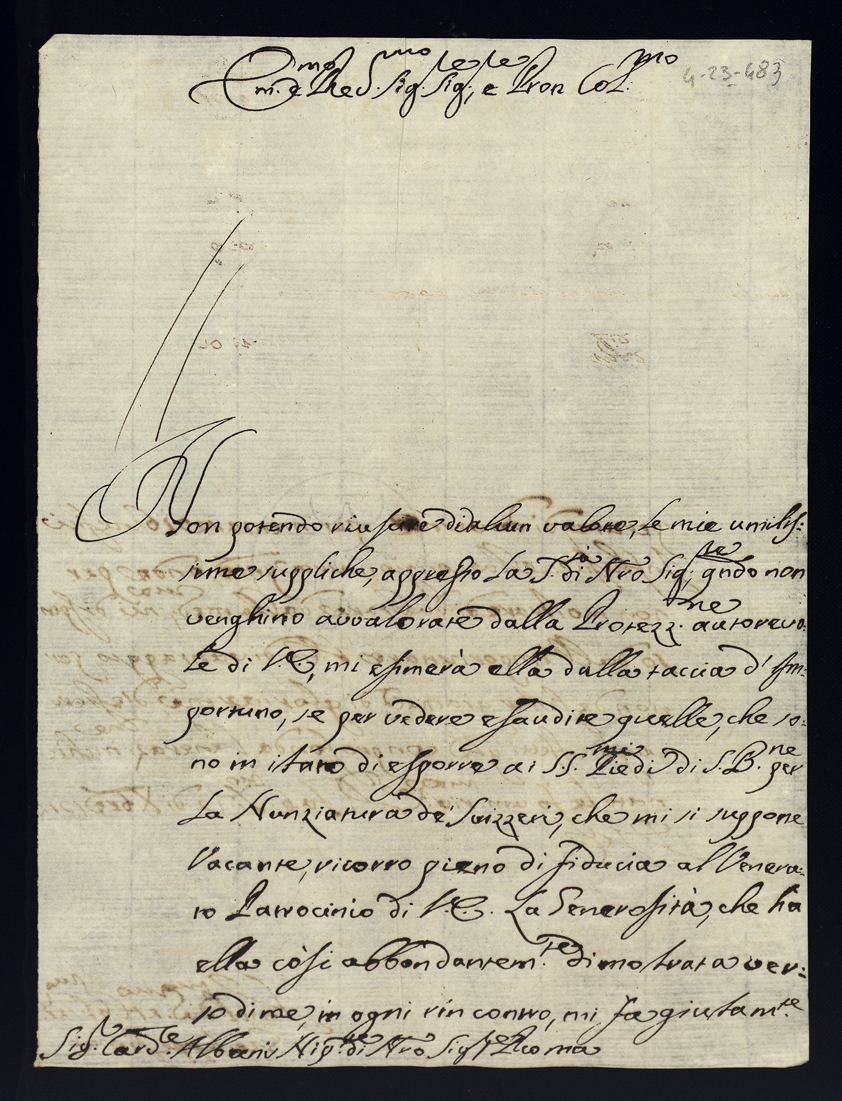 Em.mo e Re S. Sig.r Sig.re, e Pron Col.mo
4-23-483
Non potendo riuscire di alcun valore, le mie umilis:
sime suppliche, appresso La S.tà di Nro Sig.re, qndo non
venghino avvalorate dalla Protezz.ne autorevo:
le di V.E., mi esimerà ella dalla taccia d'Im:
portuno, se per vedere esaudite quelle, che so:
no in stato di esporre ai SS.mi Piedi di S.B.ne per
La Nunziatura de' Suizzeri, che mi si suppone
Vacante, ricorro pieno di fiducia al Venera:
to Patrocinio di V.E. La Generosità, che ha
ella così abbondantem.te dimostrata ver:
so di me, in ogni rincontro, mi fa giustam.te
Sig.r Card.le Albani Nip.te di Nro Sig.re Roma